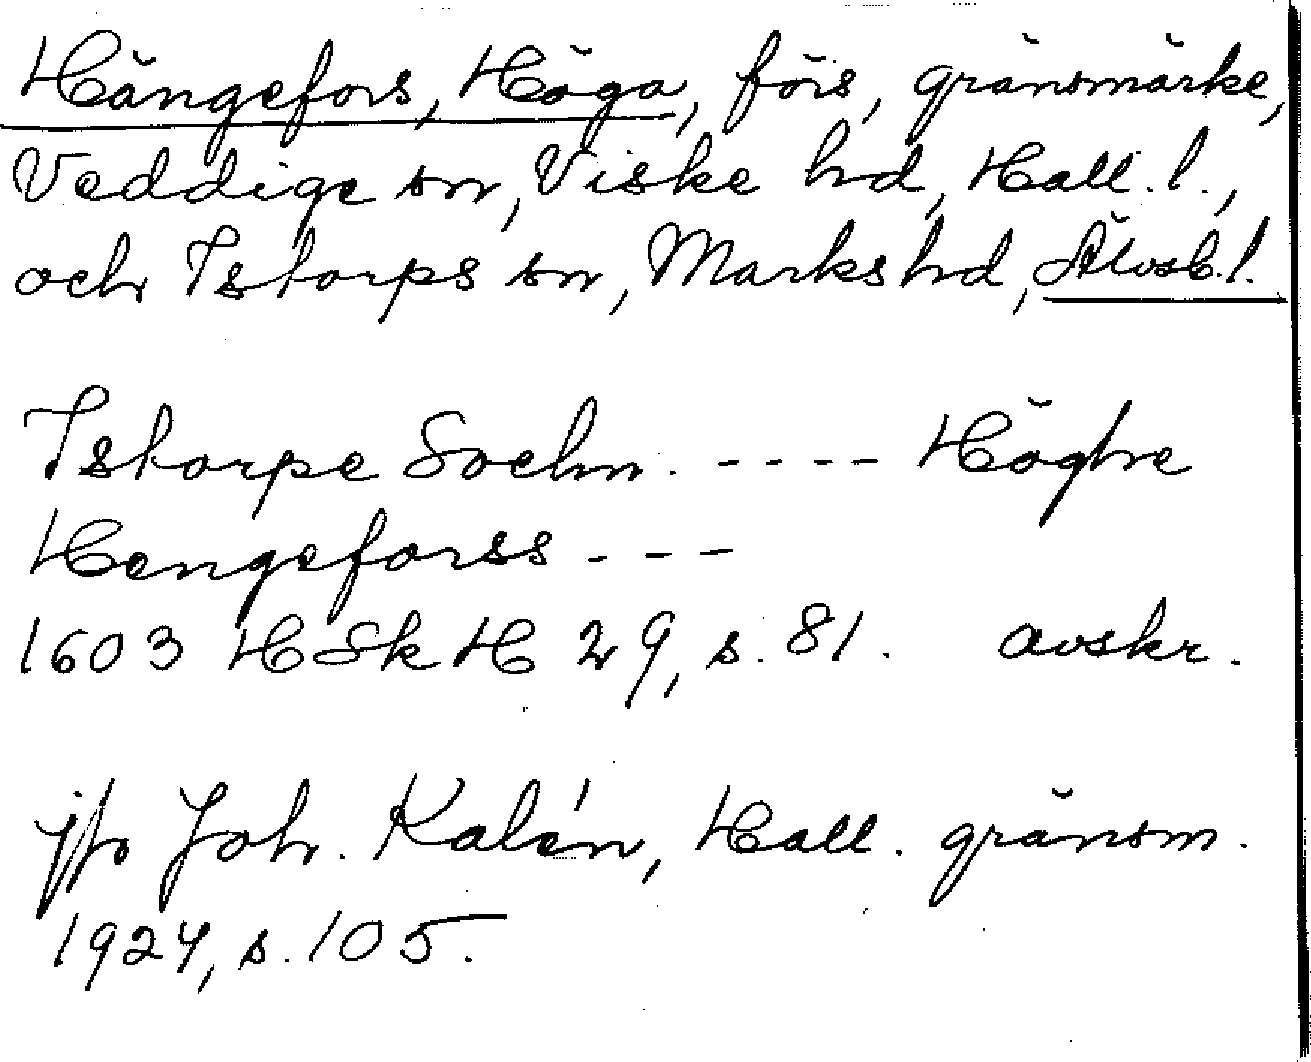 Hängefors, Höga, förs, gränsmärke,
Veddige sn, Viske hd, Hall. l.,
och Istorps sn, Marks hd, Älvsb. l.
Istorpe Sochn. - - - - Höghe
Hengeforss - - -
1603 HSkH 29, s. 81. avskr.
jfr Joh. Kalén, Hall. gränsm.
1924, s. 105.